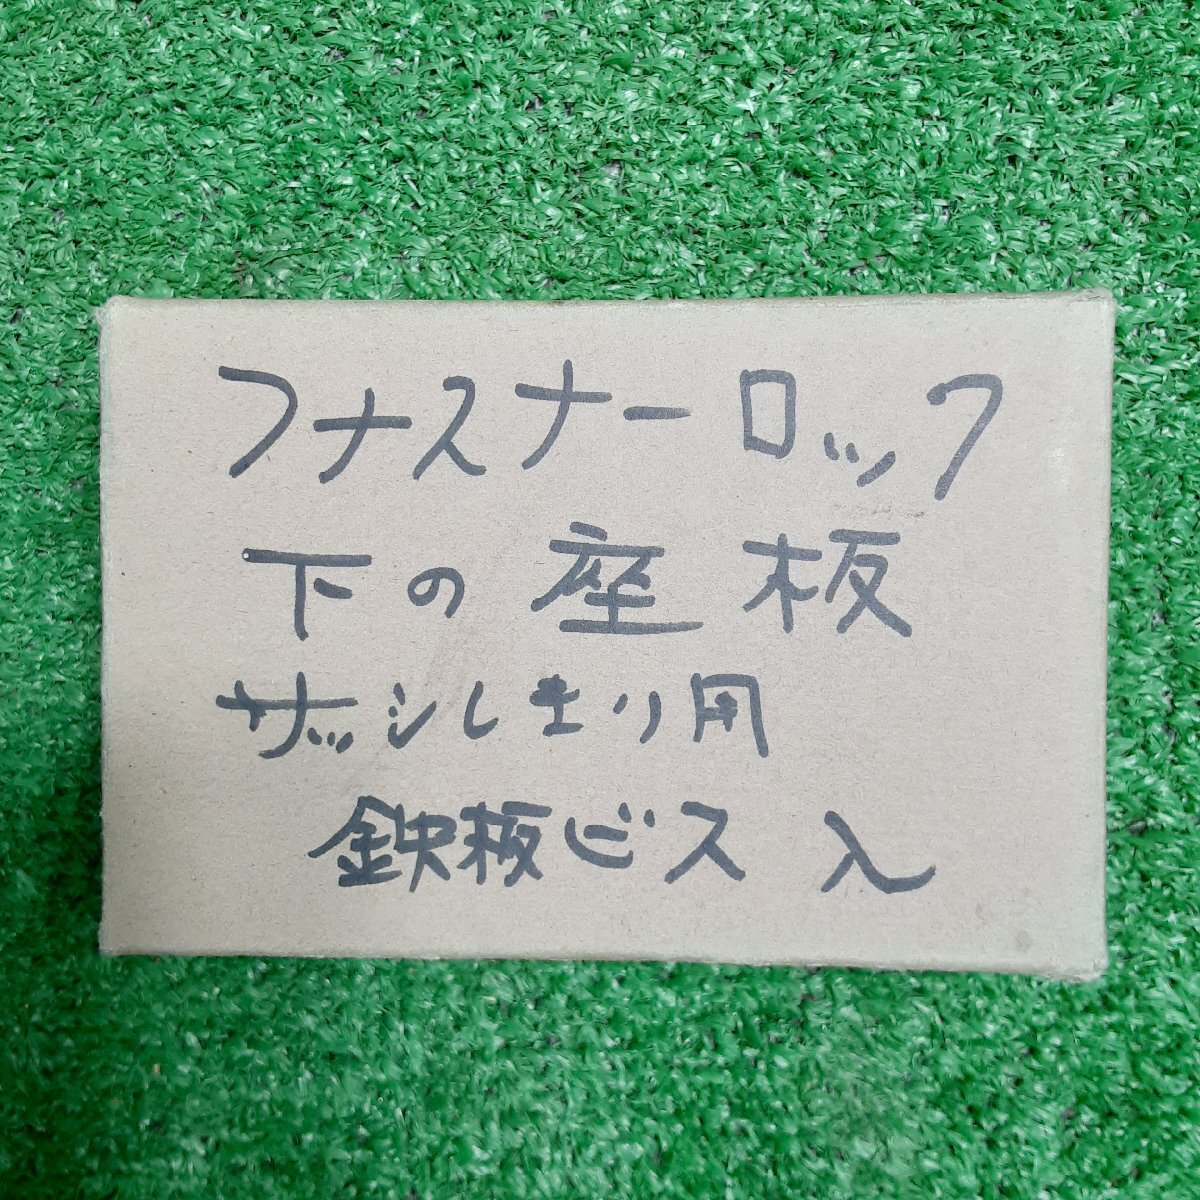 フナスナーロック
下の座板
サッシしまり用
鉄板ビス入